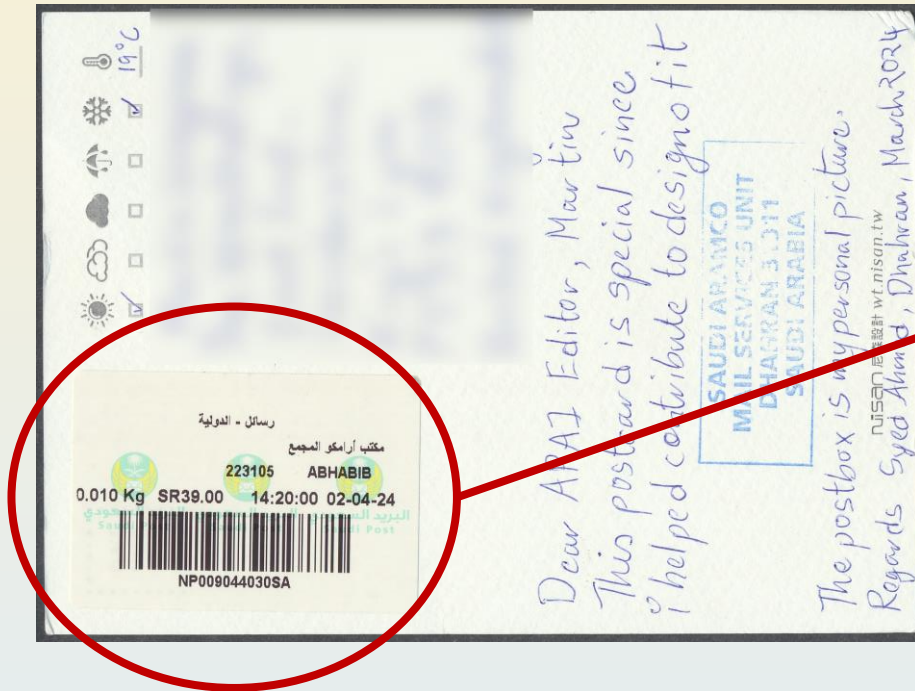 19°C
رسائل - الدولية
مكتب أرامكو المجمع
223105 ABHABIB
0.010 Kg SR39.00 14:20:00 02-04-24
البريد السعودي
Saudi Post
NP009044030SA
Dear APAI Editor, Martin
This postcard is special since
i helped contribute to design of it
SAUDI ARAMCO
MAIL SERVICES UNIT
DHAHRAN 31311
SAUDI ARABIA
The postbox is my personal picture.
nisan 設計 wt.nisan.tw
Regards Syed Ahmed, Dhahran, March 2024